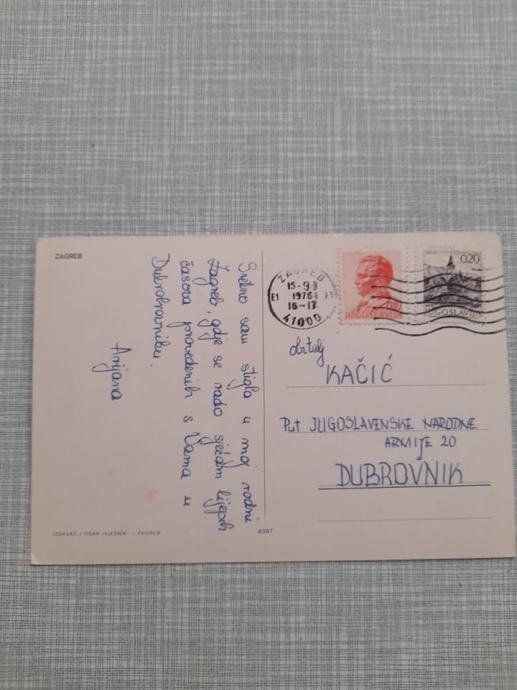 ZAGREB
Sretno sam stigla u moj rodni
Zagreb, gdje se rado sjećam lijepih
časova provedenih s Vama u
Dubrovniku.
Arijana
IZDAVAČ I TISAK »VJESNIK« - ZAGREB
6397
ZAGREB
15-9
1976
16-17
E1
41000
JUGOSLAVIJA
0,20
JUGOSLAVIJA
obitelj
KAČIĆ
Put JUGOSLAVENSKE NARODNE
ARMIJE 20
DUBROVNIK